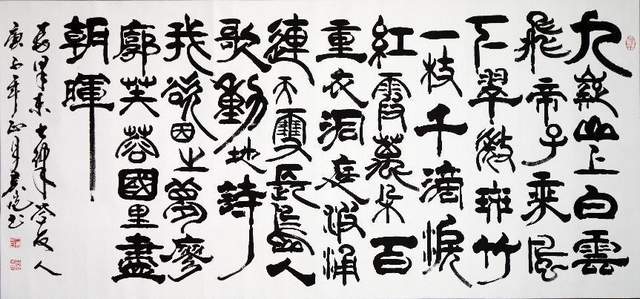 九嶷山上白雲
飛帝子乘風
下翠微斑竹
一枝千滴淚
紅霞萬朵百
重衣洞庭波涌
連天雪長島人
歌動地詩
我欲因之夢寥
廓芙蓉國里盡
朝暉
毛澤東七律答友人
庚子年正月書